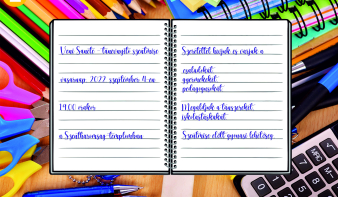 Veni Sancte - tanévnyitó szentmise
vasárnap, 2022. szeptember 4-én
19.00 órakor
a Szentháromság templomban
Szeretettel hívjuk és várjuk a
családokat,
gyermekeket,
pedagógusokat.
Megáldjuk a tanszereket,
iskolatáskákat.
Szentmise előtt gyónási lehetőség.
7
MRC